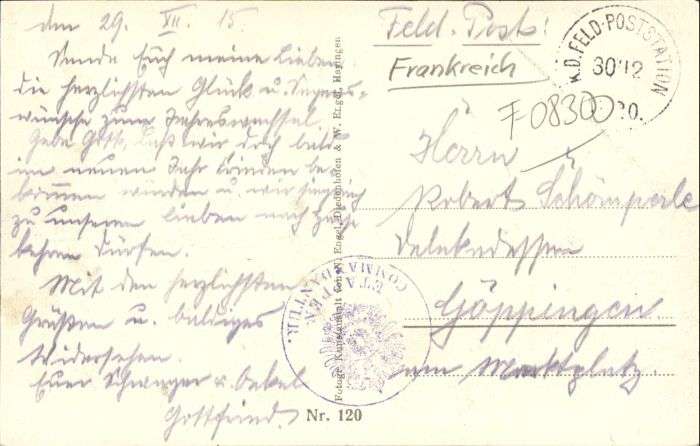 den 29. XII. 15.
Sende Euch meine Lieben
die herzlichsten Glück u. Segens-
wünsche zum Jahreswechsel.
Gebe Gott, daß wir doch bald
im neuen Jahr Frieden be
kommen würden u. wir
zu unseren lieben nach Hause
kehren dürfen.
Mit den herzlichsten
Grüßen u. baldiges
Widersehen.
Euer Schwager u. Onkel
Gottfried.
Feld-Post:
Frankreich
K.D.FELD-POSTSTATION
30 12
F 08300
Herrn
Robert Schömperle
Delikadessen
Göppingen
am Marktplatz.
ETAPPEN
COMMANDANTUR.
Fotogr. Kunstanstalt Gebr. W. Engel, Diedenhofen & W. Engel, Hayingen
Nr. 120